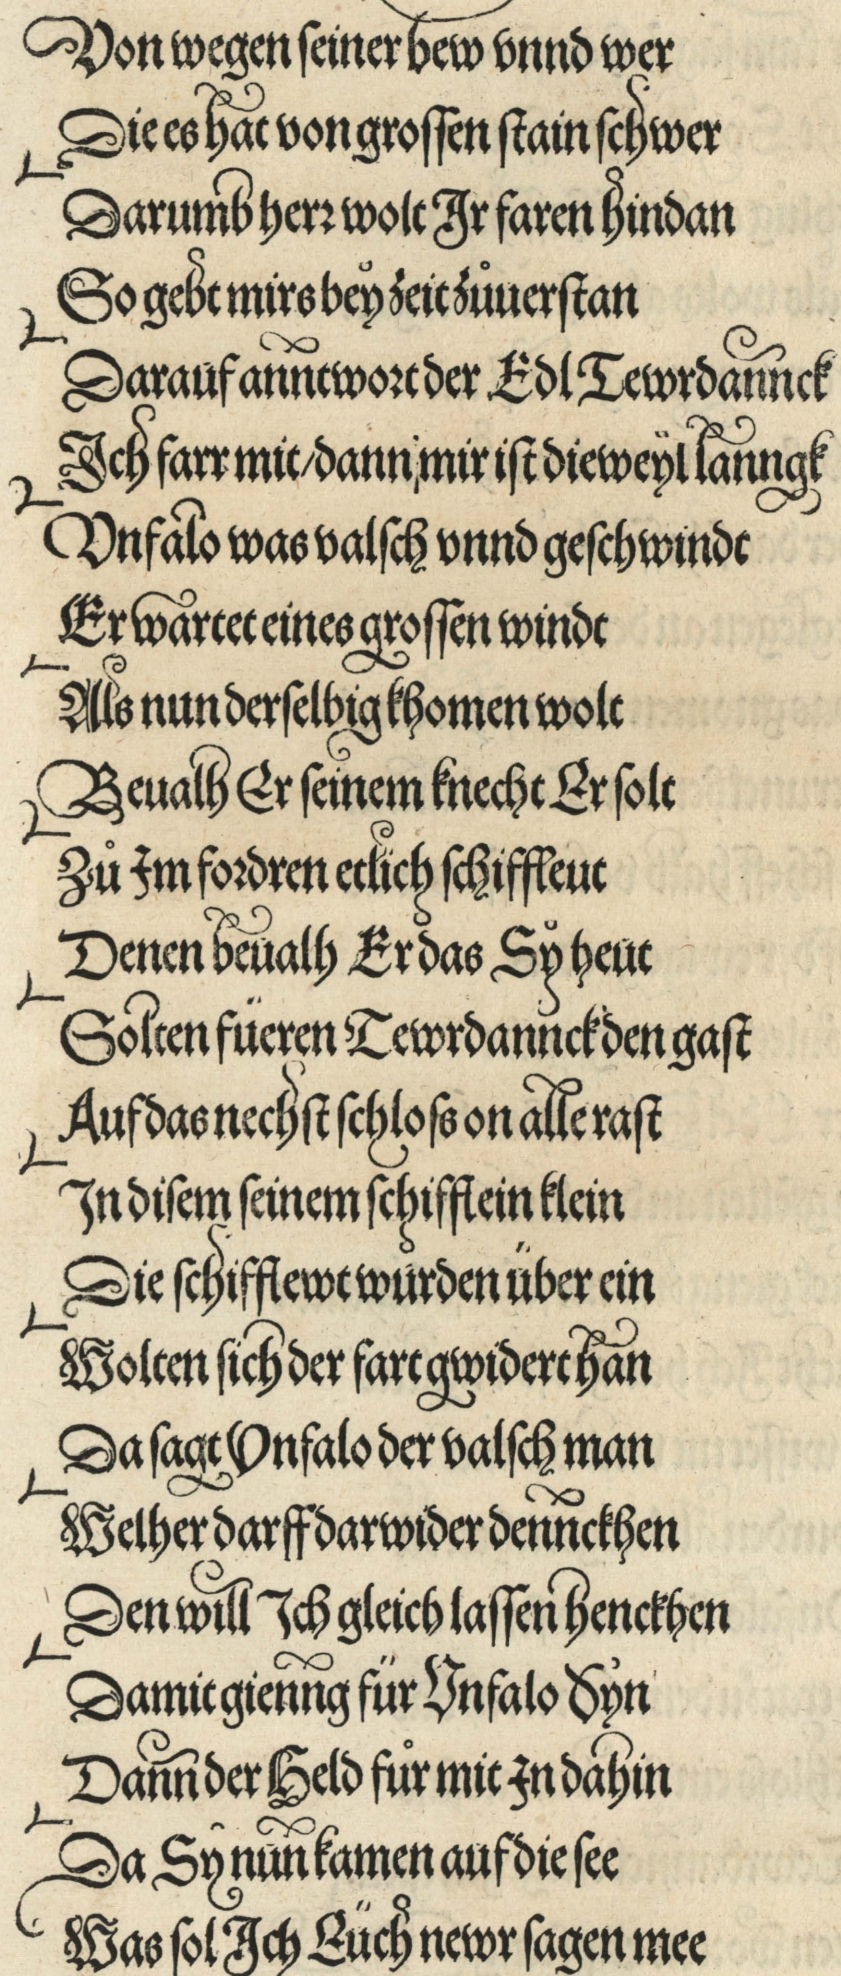 Von wegen seiner bew vnnd wer
Die es hat von grossen stain schwer
Darumb herr wolt Ir faren hindan
So gebt mirs bey zeit zůuerstan
Darauf anntwort der Edl Tewrdannck
Ich farr mit/dann mir ist die weyl lanngk
Vnfalo was valsch vnnd geschwindt
Er wartet eines grossen windt
Als nun derselbig khomen wolt
Beualh Er seinem knecht Er solt
Zů Im fordren etlich schiffleut
Denen beualh Er das Sy heut
Solten füeren Tewrdannck den gast
Auf das nechst schloss on alle rast
In disem seinem schifflein klein
Die schifflewt wurden über ein
Wolten sich der fart gwidert han
Da sagt Vnfalo der valsch man
Welher darff darwider dennckhen
Den will Ich gleich lassen henckhen
Damit gienng für Vnfalo Syn
Dann der Held fůr mit In dahin
Da Sy nun kamen auf die see
Was sol Ich Eüch newr sagen mee